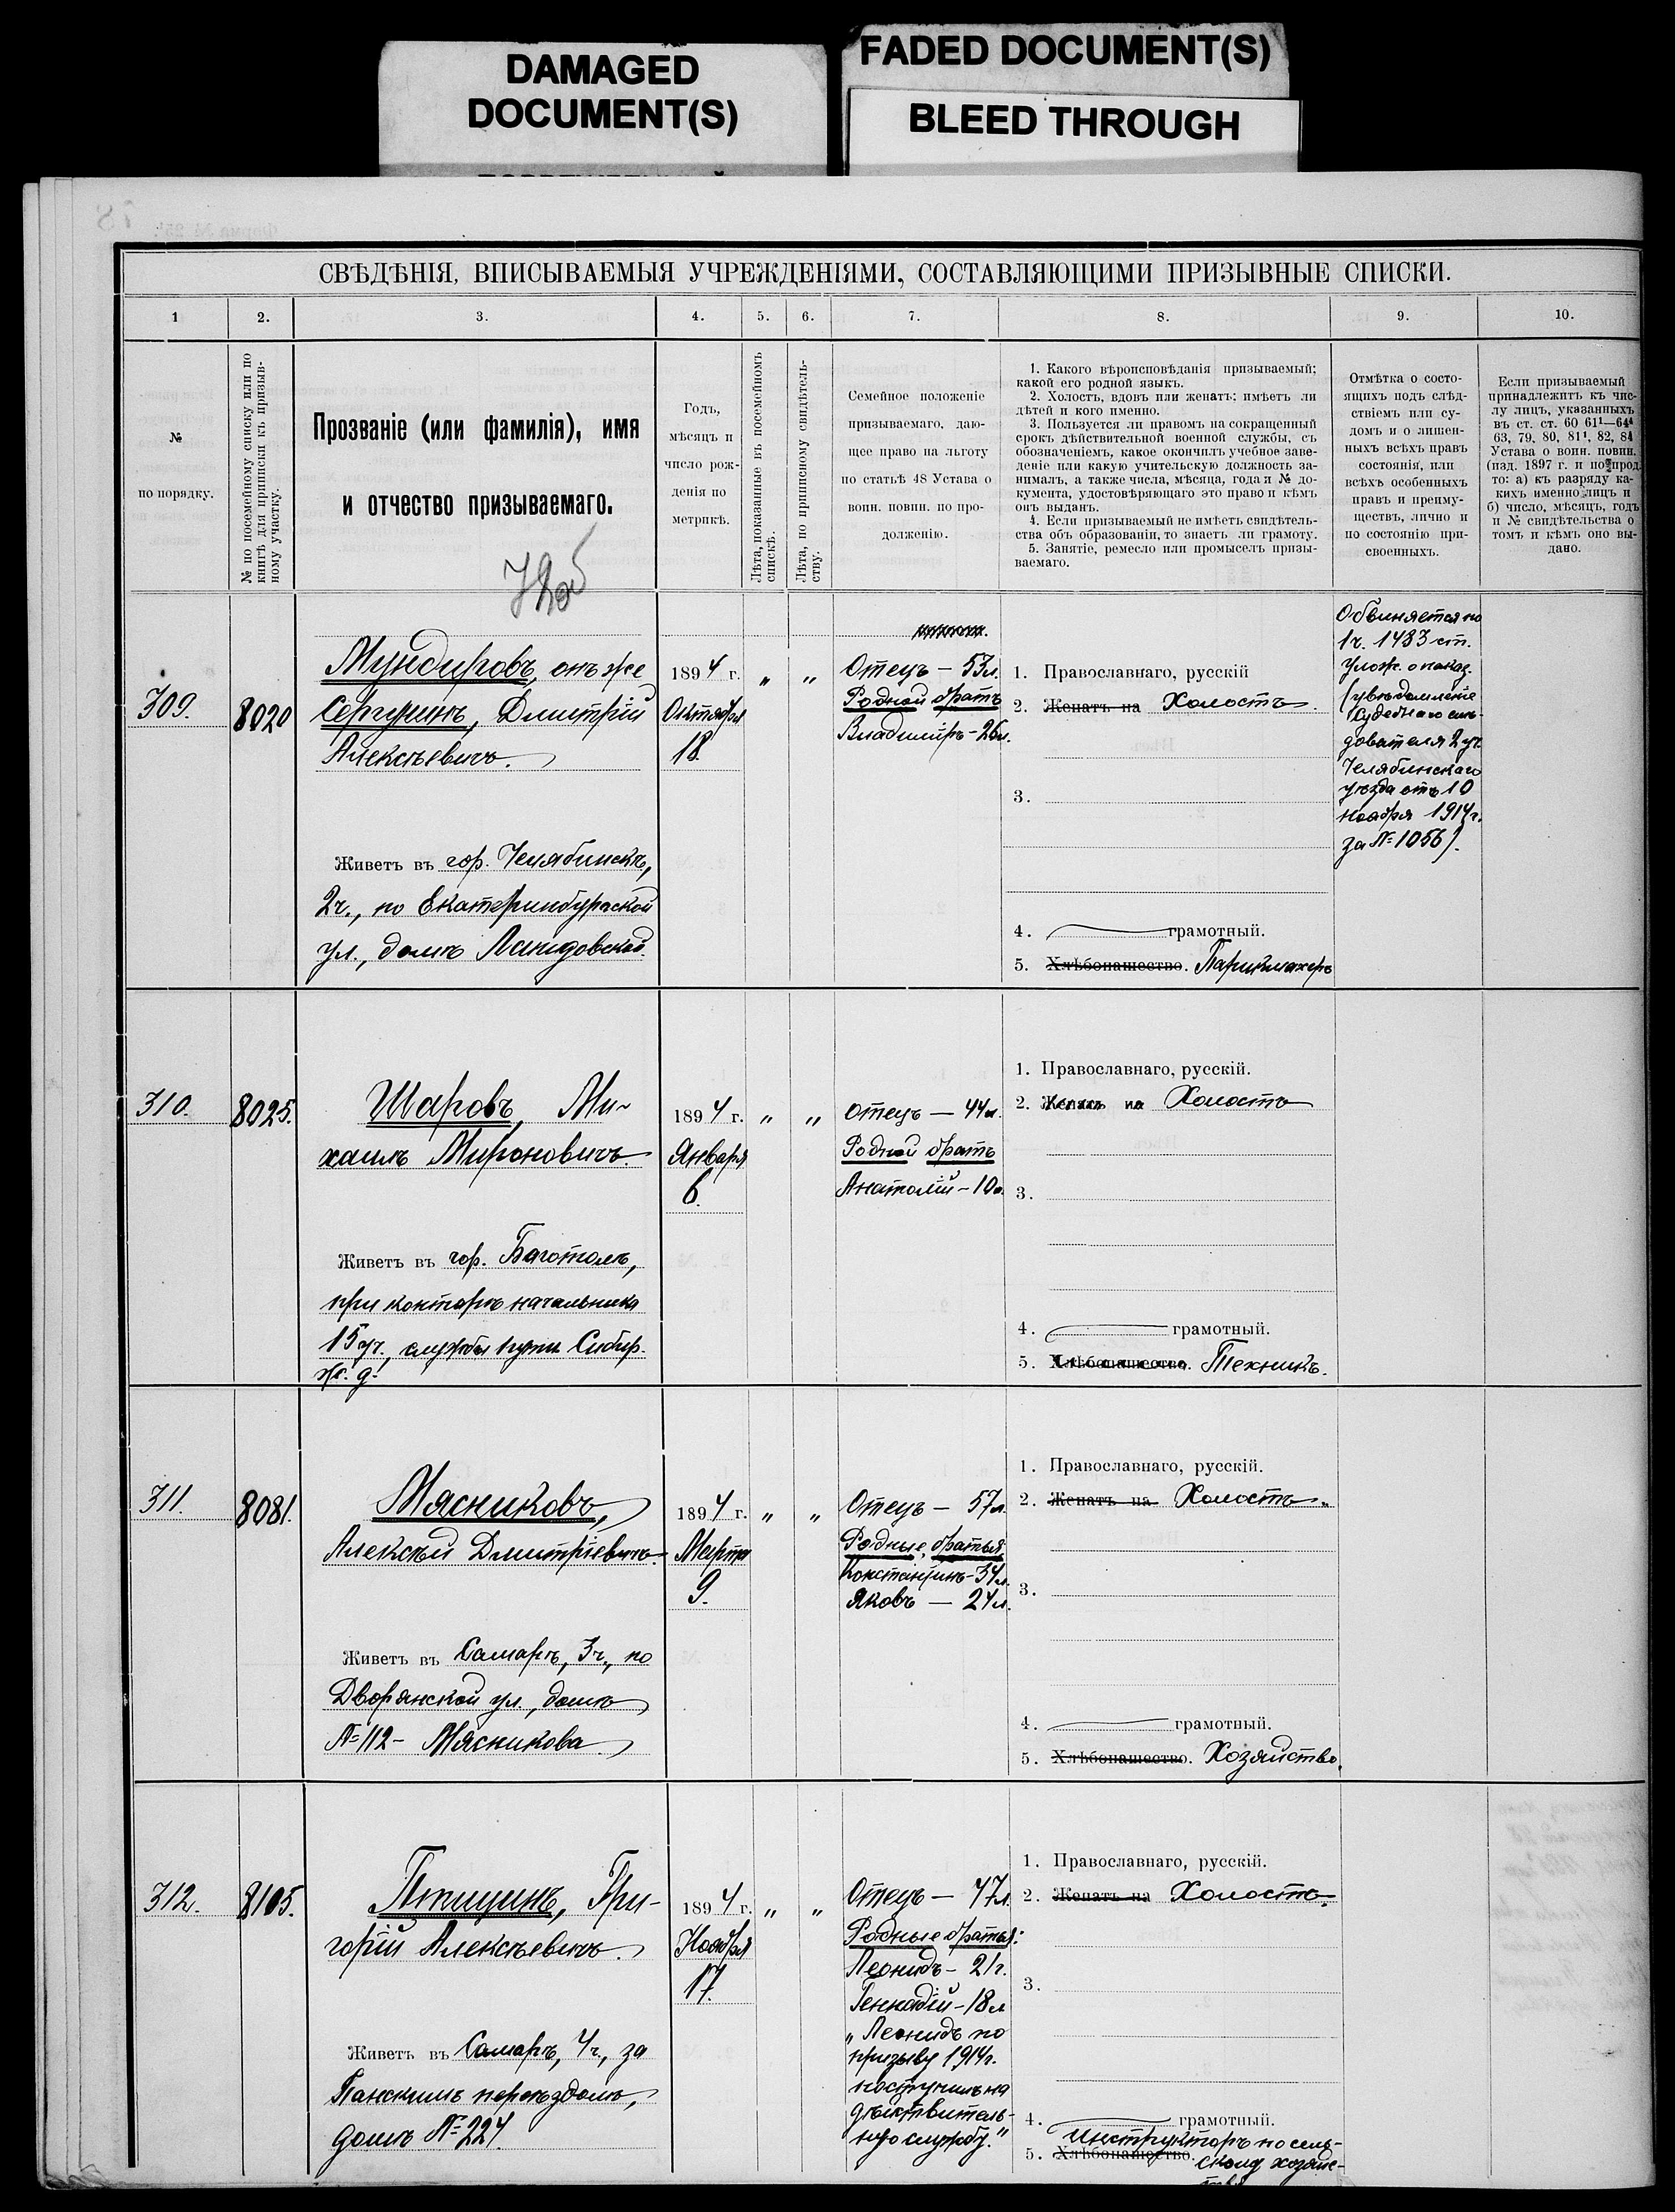 DAMAGED
DOCUMENT(S)
FADED DOCUMENT(S)
BLEED THROUGH
СВѢДѢНІЯ, ВПИСЫВАЕМЫЯ УЧРЕЖДЕНІЯМИ, СОСТАВЛЯЮЩИМИ ПРИЗЫВНЫЕ СПИСКИ.
1
2.
3.
4.
5.
6.
7.
8.
9.
10.
№
по порядку.
№ по посемейному списку или по
книгѣ для приписки къ призыв-
ному участку.
Прозваніе (или фамилія), имя
и отчество призываемаго.
Годъ,
мѣсяцъ и
число рож-
денія по
метрикѣ.
Лѣта, показанные въ посемейномъ
спискѣ.
Лѣта, по приписному свидѣтель-
ству.
Семейное положеніе
призываемаго, даю-
щее право на льготу
по статьѣ 48 Устава о
воин. повин. по про-
долженію.
1. Какого вѣроисповѣданія призываемый;
какой его родной языкъ.
2. Холостъ, вдовъ или женатъ; имѣетъ ли
дѣтей и кого именно.
3. Пользуется ли правомъ на сокращенный
срокъ дѣйствительной военной службы, съ
обозначеніемъ, какое окончилъ учебное заве-
деніе или какую учительскую должность за-
нималъ, а также числа, мѣсяца, года и № до-
кумента, удостовѣряющаго это право и кѣмъ
онъ выданъ.
4. Если призываемый не имѣетъ свидѣтель-
ства объ образованіи, то знаетъ ли грамоту.
5. Занятіе, ремесло или промыселъ призы-
ваемаго.
Отмѣтка о состо-
ящихъ подъ слѣд-
ствіемъ или су-
домъ и о лишен-
ныхъ всѣхъ правъ
состоянія, или
всѣхъ особенныхъ
правъ и преиму-
ществъ, лично и
по состоянію при-
своенныхъ.
Если призываемый
принадлежитъ къ чис-
лу лицъ, указанныхъ
въ ст. ст. 60 61¹—64⁴
63, 79, 80, 81¹, 82, 84
Устава о воин. повин.
(изд. 1897 г. и по прод.
то: а) къ разряду ка-
кихъ именно лицъ и
б) число, мѣсяцъ, годъ
и № свидѣтельства о
томъ и кѣмъ оно вы-
дано.
309.
8020
Мундировъ, онъ же
Сергушинъ, Дмитрій
Алексѣевичъ.
Живетъ въ гор. Челябинскѣ,
2ч., по Екатеринбургской
ул., домъ
1894 г.
Октября
18.
„
„
Отецъ — 53л.
Родной братъ
Владиміръ - 26л.
1. Православнаго, русскій
2. Женатъ на Холостъ.
3.
4. грамотный.
5. Хлѣбопашество. Парикмахеръ
Обвиняется по
1ч. 1483 ст.
Улож. о наказ.
(увѣдомленіе
Судебнаго слѣ-
дователя 2 уч.
Челябинскаго
уѣзда отъ 10
ноября 1914г.
за № 1056).
310.
8025.
Шаровъ, Ми-
хаилъ Мироновичъ.
Живетъ въ гор. Баготолѣ,
при конторѣ начальника
15 уч., службы пути Сибир.
ж. д.
1894 г.
Января
6.
„
„
Отецъ — 44л.
Родной братъ
Анатолій - 10л.
1. Православнаго, русскій.
2. Женатъ на Холостъ
3.
4. грамотный.
5. Хлѣбопашество. Техникъ.
311.
8081.
Мясниковъ,
Алексѣй Дмитріевичъ.
Живетъ въ Самарѣ, 3ч., по
Дворянской ул., домъ
№ 112 - Мясникова.
1894 г.
Марта
9.
„
„
Отецъ — 57л.
Родные братья
Константинъ - 34л.
Яковъ — 24л.
1. Православнаго, русскій.
2. Женатъ на Холостъ.
3.
4. грамотный.
5. Хлѣбопашество. Хозяйство.
312.
8105.
Птицинъ, Гри-
горій Алексѣевичъ.
Живетъ въ Самарѣ, 4ч., за
Панскимъ переѣздомъ,
домъ № 224.
1894 г.
Ноября
17.
„
„
Отецъ — 47л.
Родные братья:
Леонидъ - 21г.
Геннадій - 18л
„Леонидъ по
призыву 1914г.
поступилъ на
дѣйствитель-
ную службу."
1. Православнаго, русскій.
2. Женатъ на Холостъ.
3.
4. грамотный.
Инструкторъ по сель-
5. Хлѣбопашество. скому хозяйс-